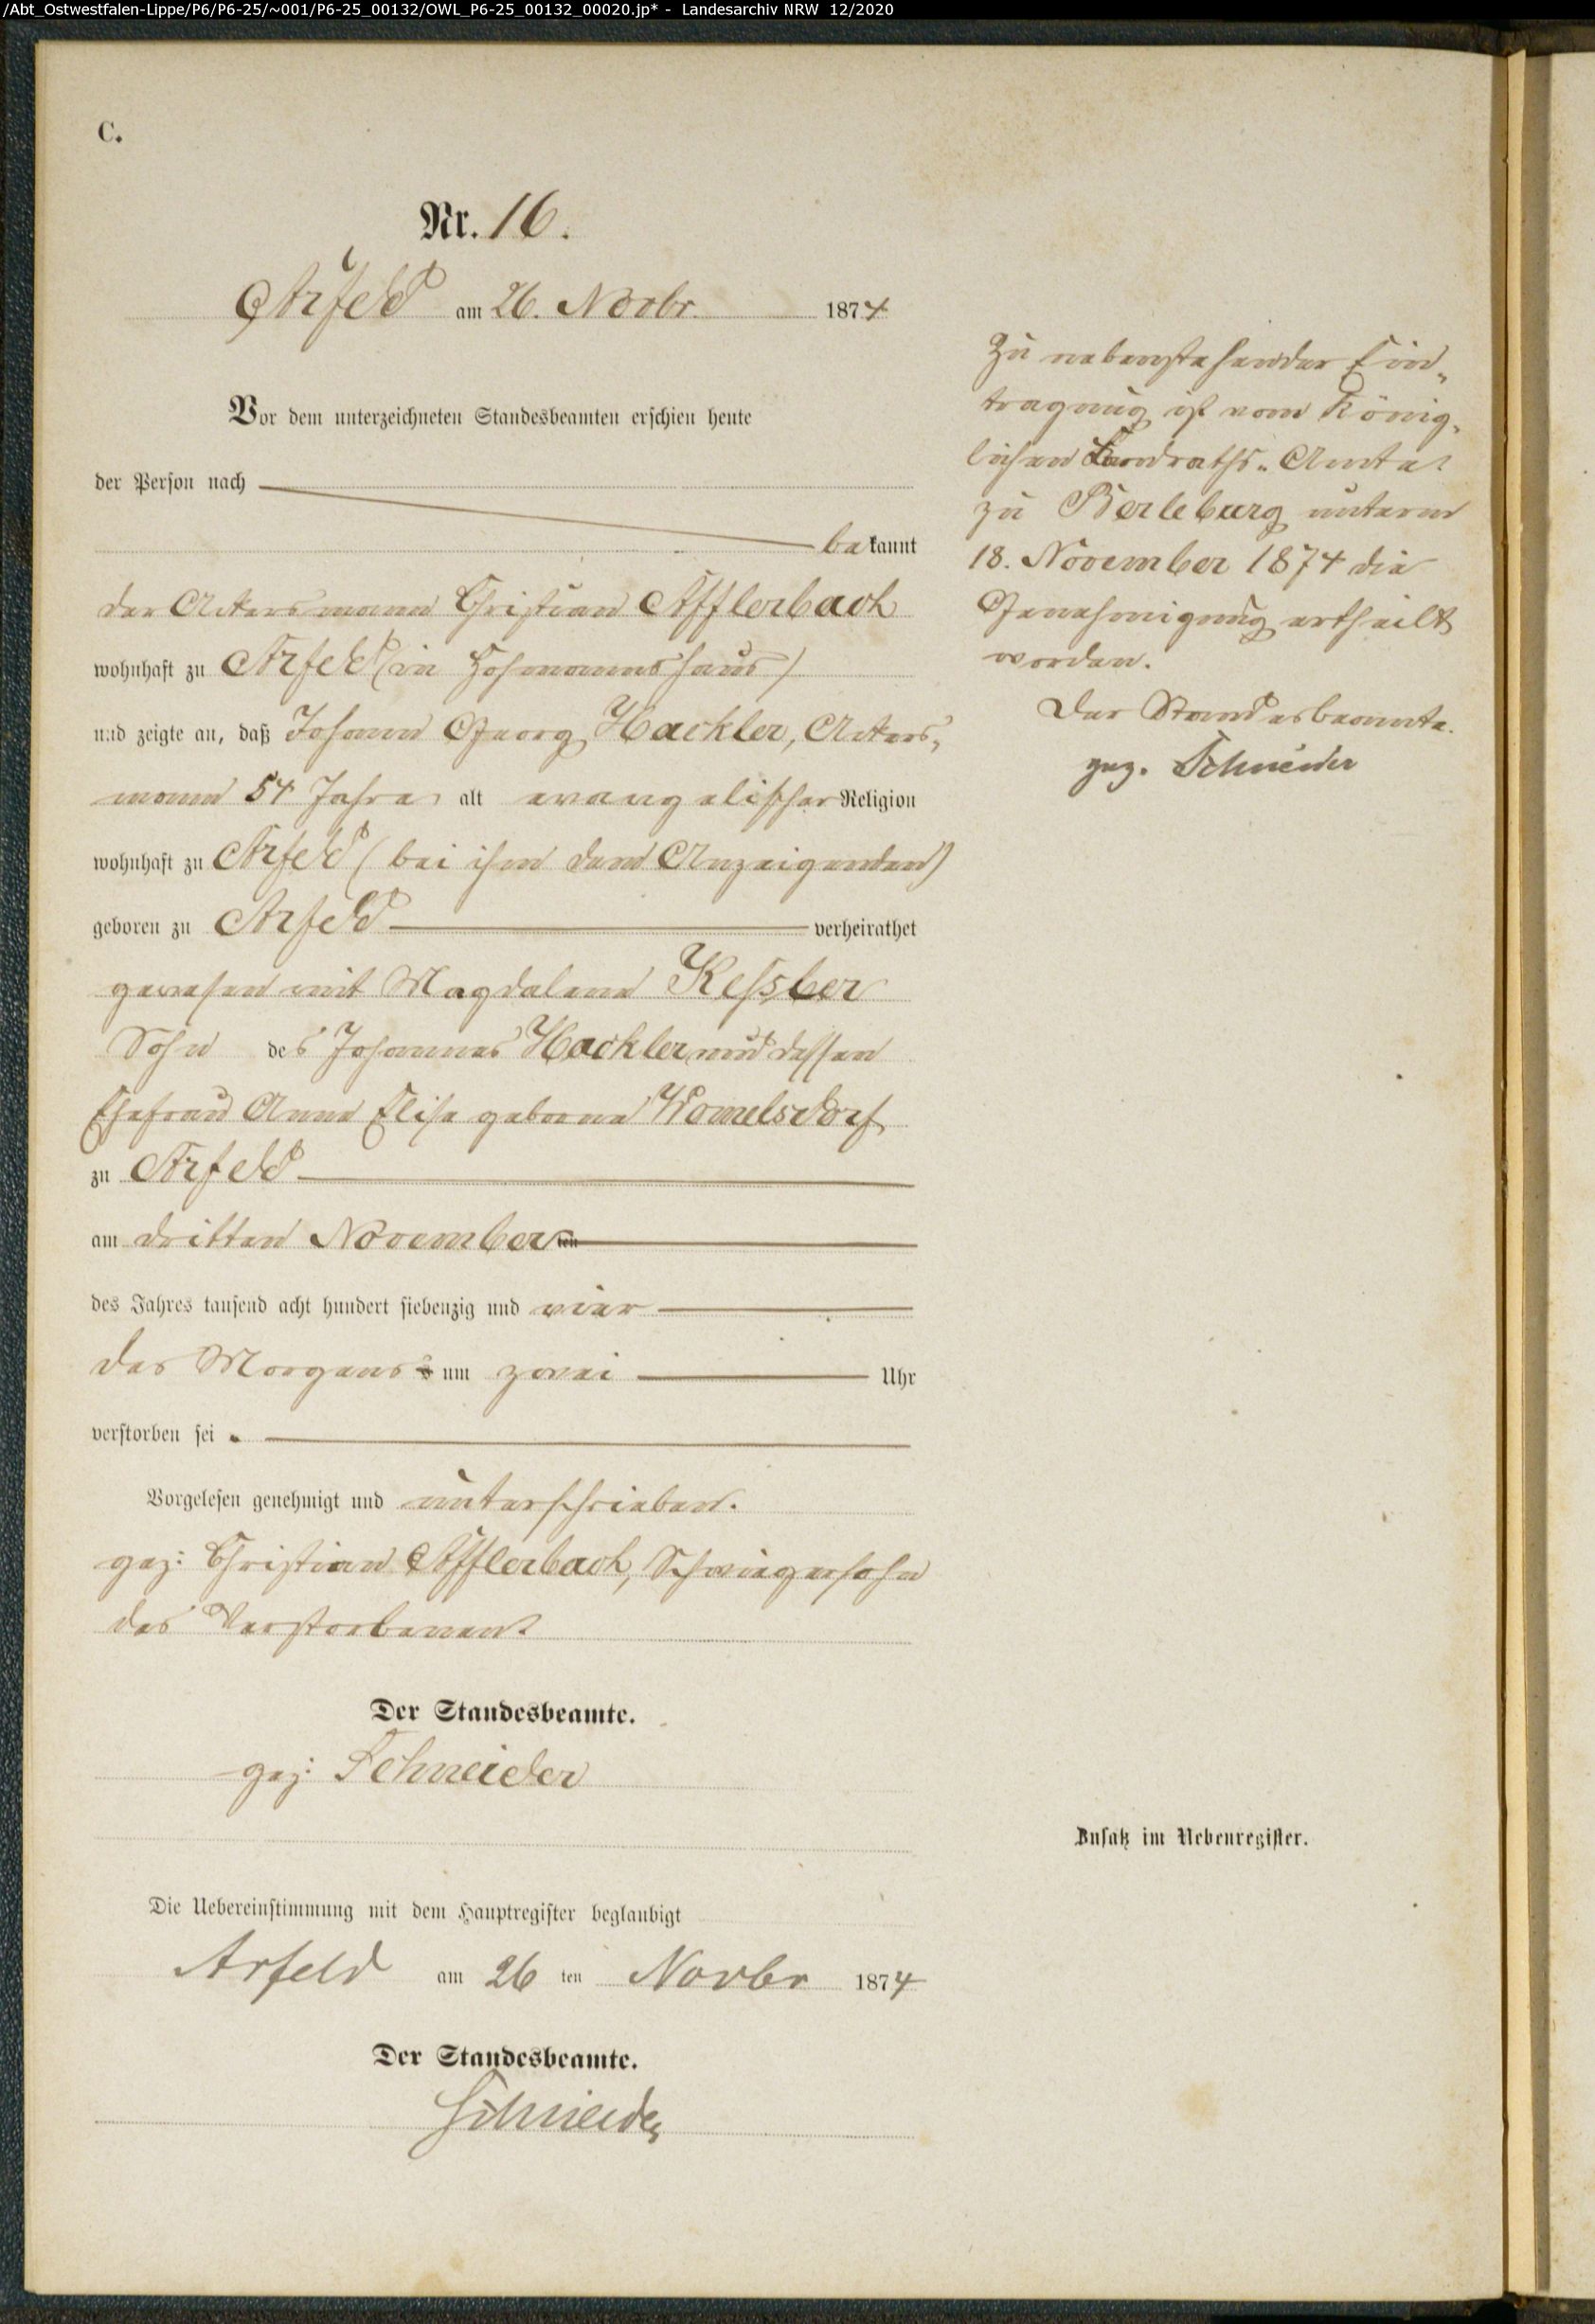 /Abt_Ostwestfalen-Lippe/P6/P6-25/~001/P6-25_00132/OWL_P6-25_00132_00020.jp* - Landesarchiv NRW 12/2020
C.
Nr. 16.
Arfeld am 26. Novbr. 1874
Vor dem unterzeichneten Standesbeamten erschien heute
der Person nach
bekannt
der Ackersmann Christian Afflerbach
wohnhaft zu Arfeld (in Hofmannshaus)
und zeigte an, daß Johann Georg Hackler, Ackers-
mann 54 Jahre alt evangelischer Religion
wohnhaft zu Arfeld (bei ihm dem Anzeigenden)
geboren zu Arfeld verheirathet
gewesen mit Magdalena Keßler
Sohn des Johannes Hackler und dessen
Ehefrau Anna Elisa geborne Womelsdorf
zu Arfeld
am dritten November ten
des Jahres tausend acht hundert siebenzig und vier
des Morgens um zwei Uhr
verstorben sei.
Vorgelesen genehmigt und unterschrieben.
gez: Christian Afflerbach, Schwiegersohn
des Verstorbenen
Der Standesbeamte.
gez: Schneider
Die Uebereinstimmung mit dem Hauptregister beglaubigt
Arfeld am 26 ten Novbr 1874
Der Standesbeamte.
Schneider
Zu nebenstehender Ein-
tragung ist vom König-
lichen Landraths-Amte
zu Berleburg unterm
18. November 1874 die
Genehmigung ertheilt
worden.
Der Standesbeamte.
gez. Schneider
Zusatz im Nebenregister.